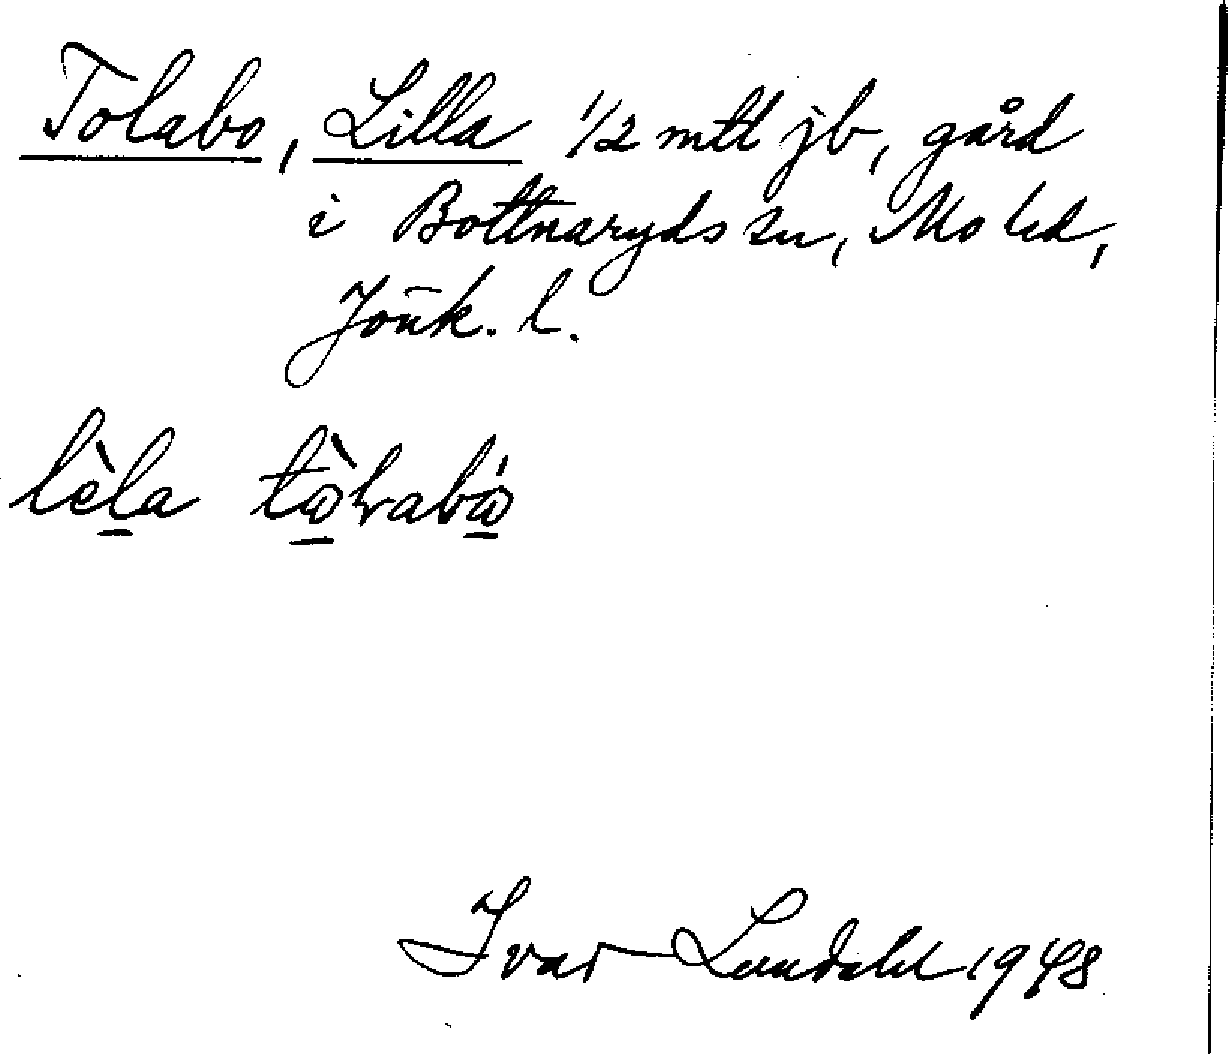 Tolabo, Lilla 1/2 mtl jb, gård
i Bottnaryds sn, Mo hd,
Jönk. l.
lèla
Ivar Lundahl 1948